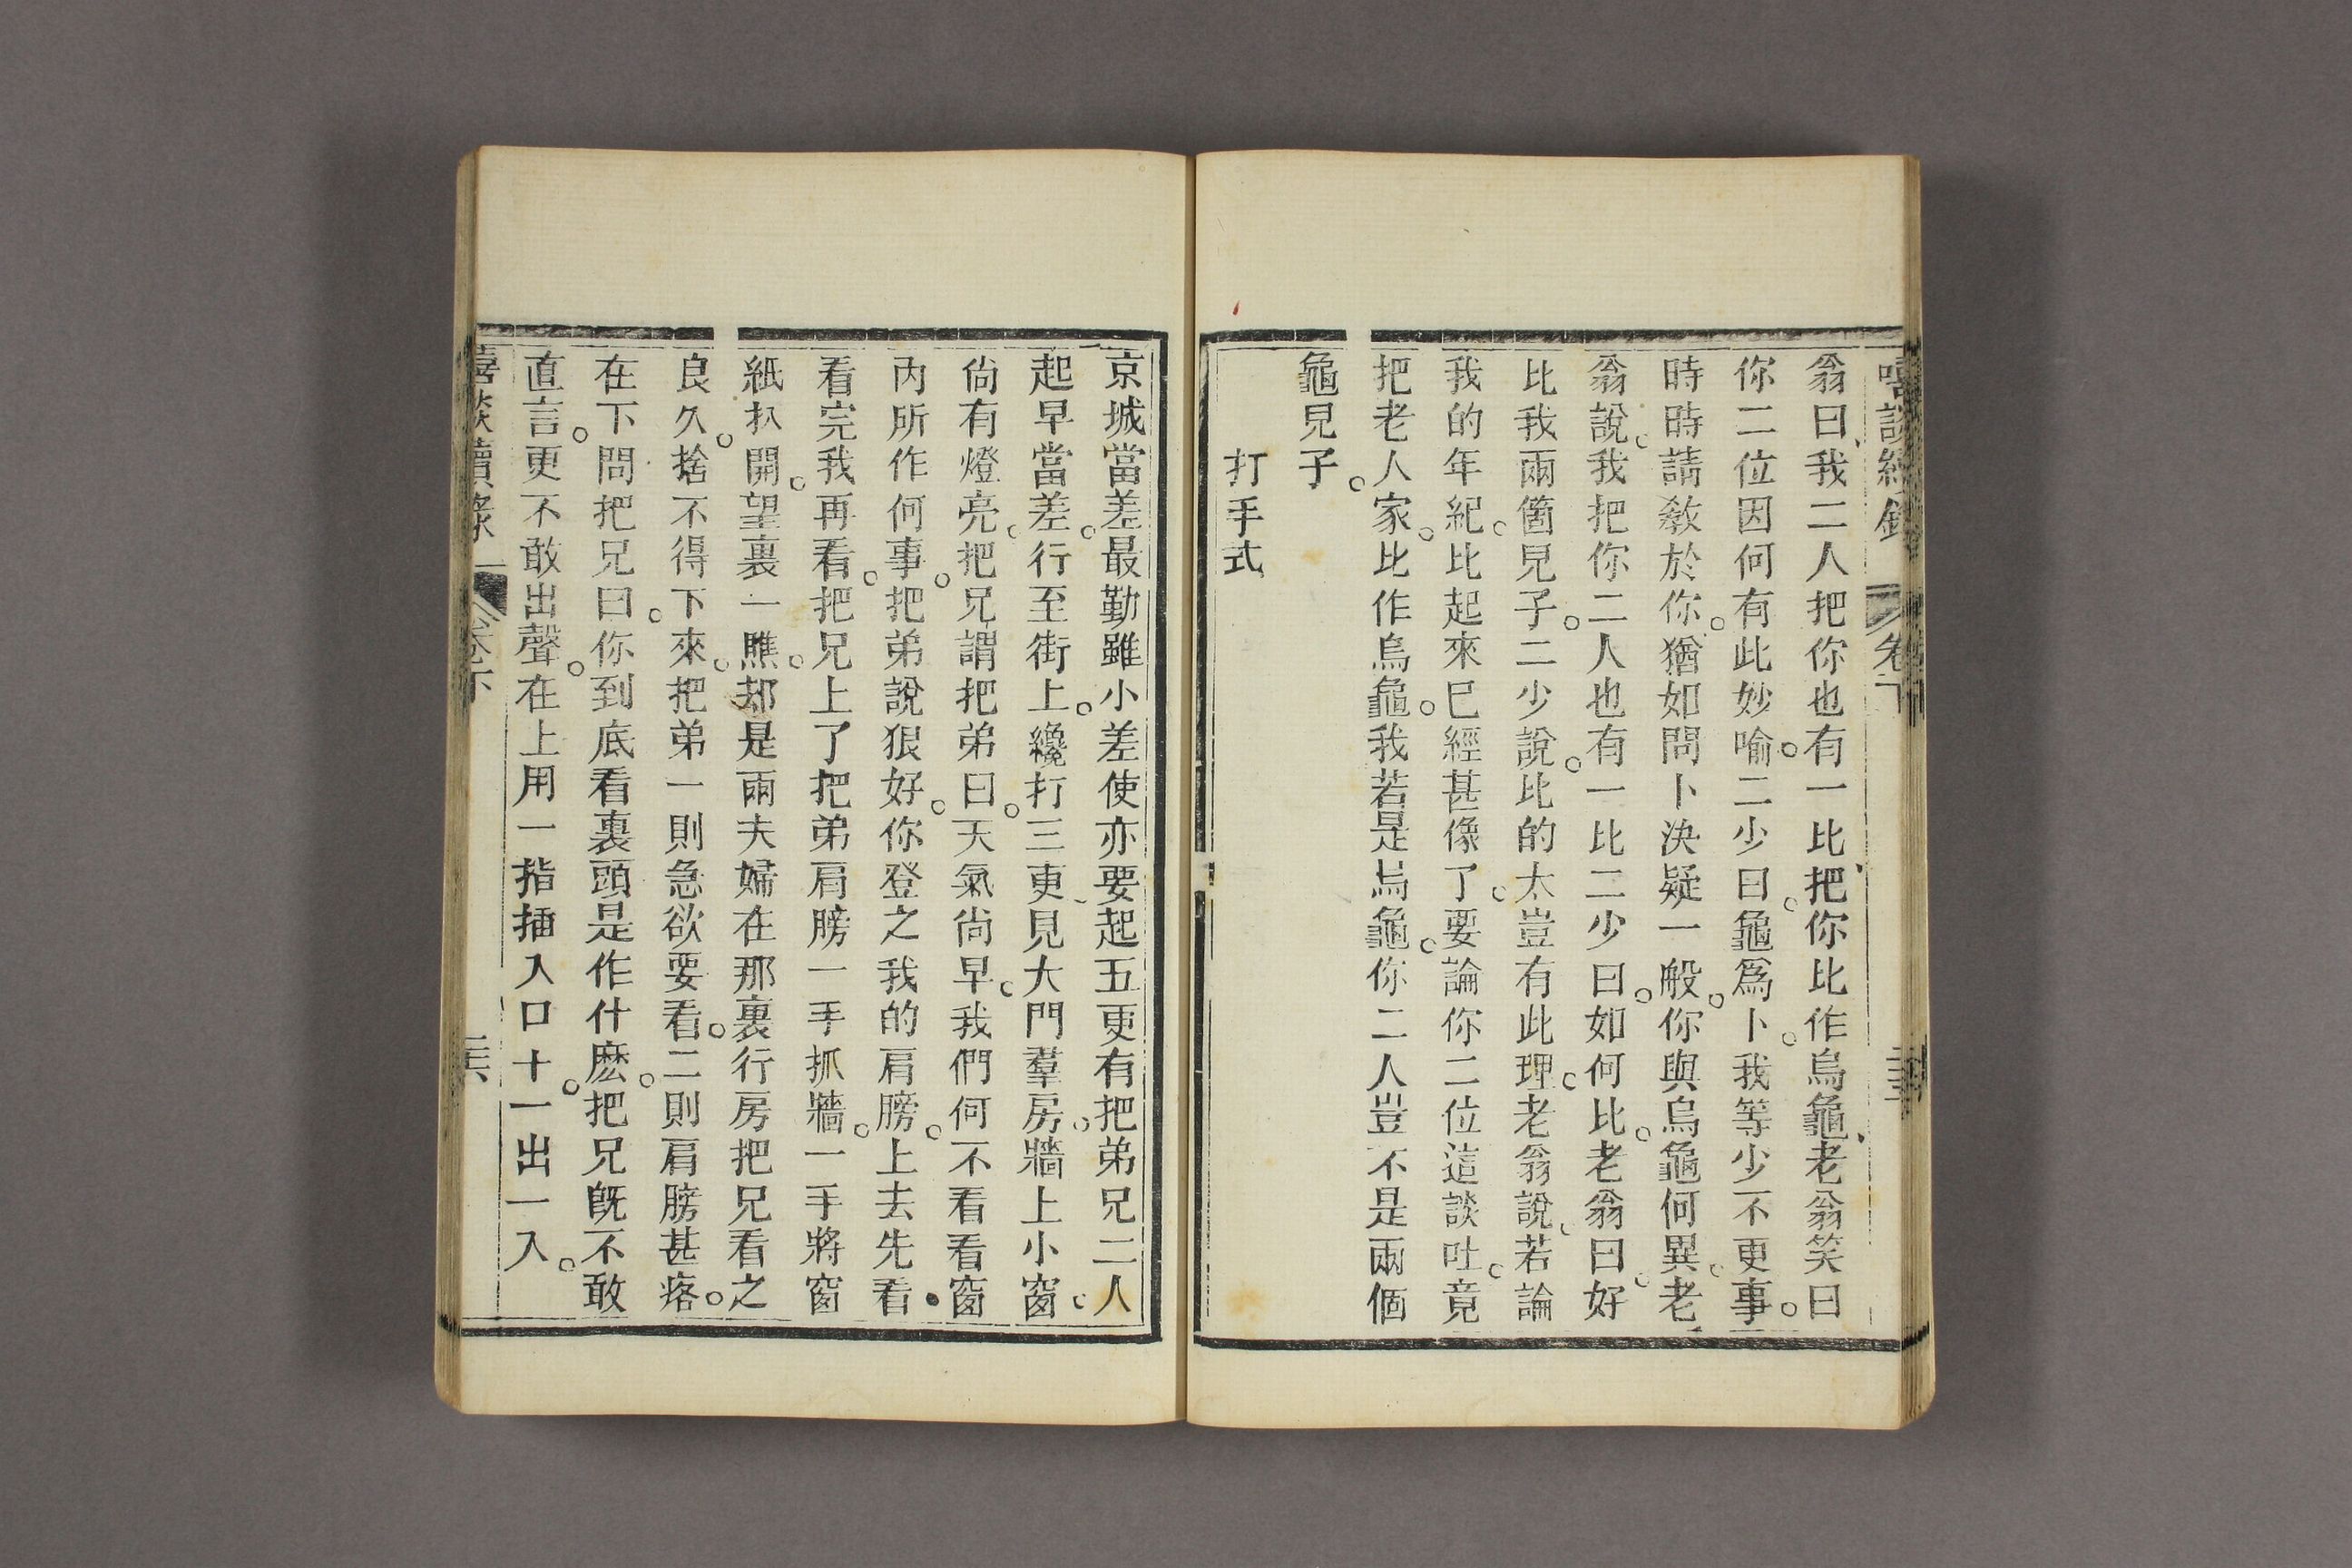 嘻談續錄 卷下
翁曰我二人把你也有一比把你比作烏龜老翁笑曰
你二位因何有此妙喻二少曰龜爲卜我等少不更事
時時請敎於你猶如問卜決疑一般你與烏龜何異老
翁說我把你二人也有一比二少曰如何比老翁曰好
比我兩箇見子二少說比的太豈有此理老翁說若論
我的年紀比起來已經甚像了要論你二位這談吐竟
把老人家比作烏龜我若是烏龜你二人豈不是兩個
龜見子
打手式
京城當差最勤雖小差使亦要起五更有把弟兄二人
起早當差行至街上纔打三更見大門羣房牆上小窗
尙有燈亮把兄謂把弟曰天氣尙早我們何不看看窗
內所作何事把弟說狠好你登之我的肩膀上去先看
看完我再看把兄上了把弟肩膀一手抓牆一手將窗
紙扒開望裏一瞧却是兩夫婦在那裏行房把兄看之
良久捨不得下來把弟一則急欲要看二則肩膀甚疼
在下問把兄曰你到底看裏頭是作什麽把兄旣不敢
直言更不敢出聲在上用一指插入口十一出一入
嘻談續錄 卷下 二六